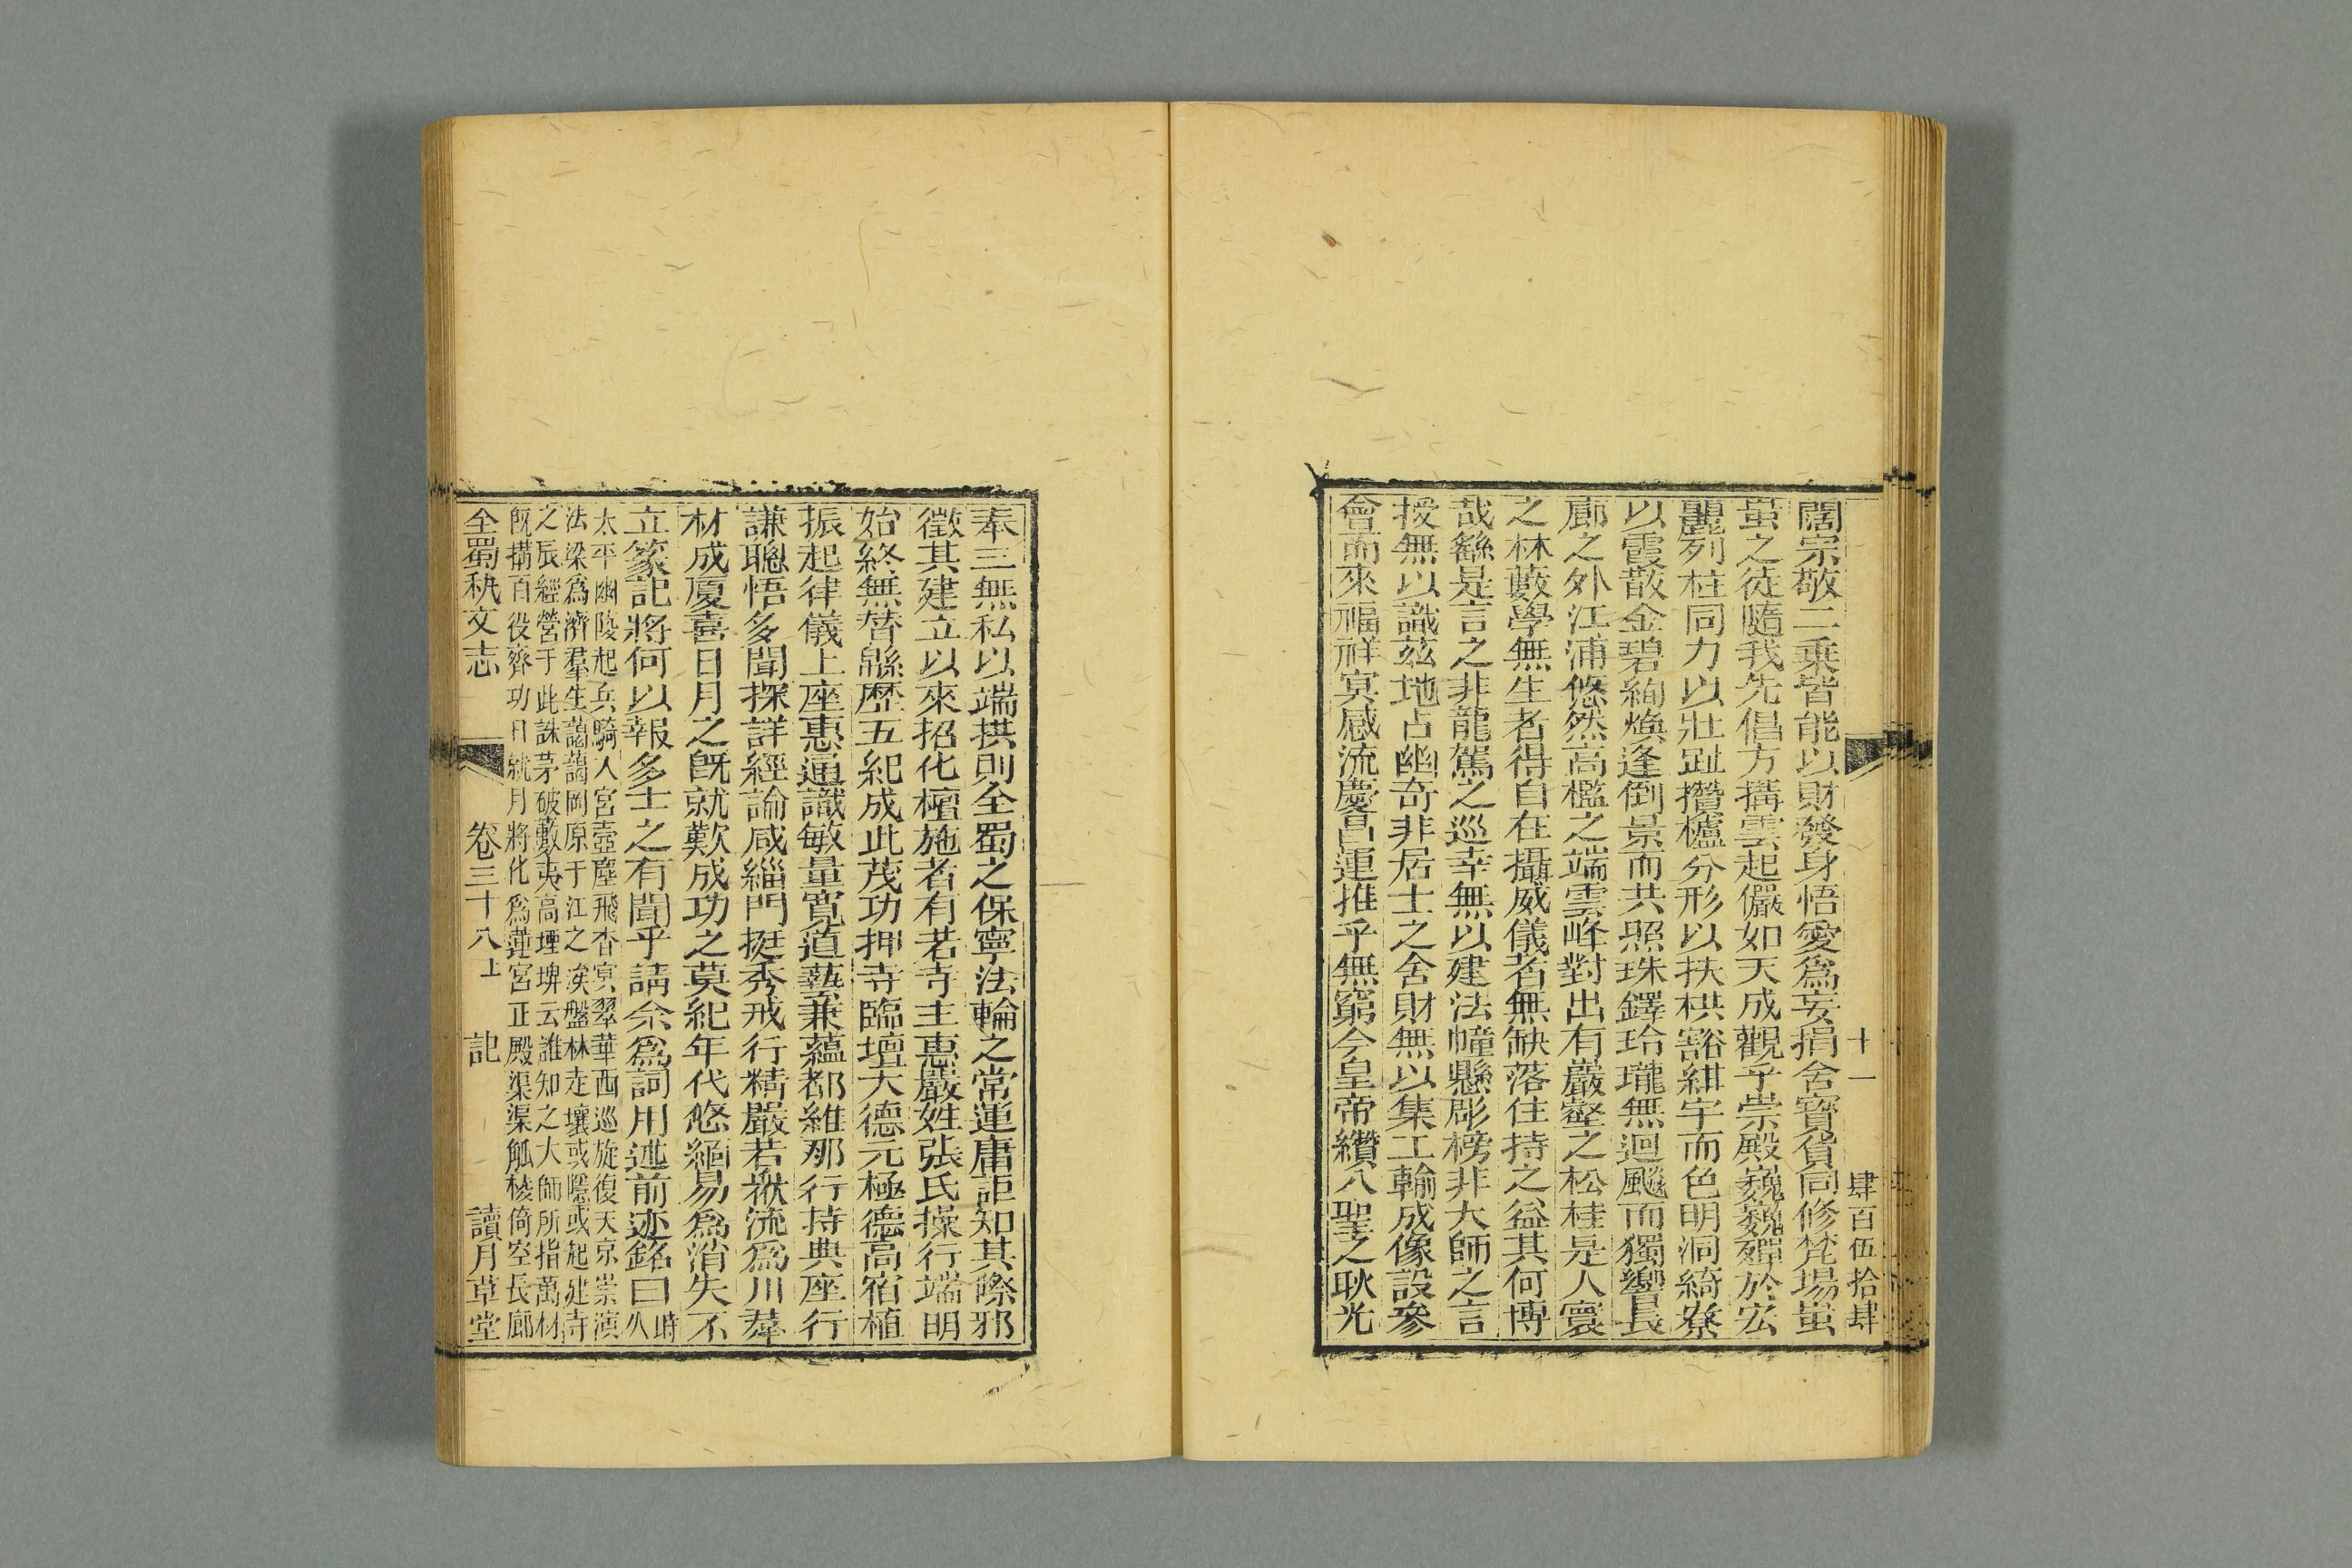 十一　肆百伍拾肆
闊宗敬二乗皆能以財發身悟愛爲妄捐舍寶貨同修梵場蚩
蚩之徒隨我先倡方搆雲起儼如天成觀乎崇殿巍巍殫於宏
麗列柱同力以壯趾攢櫨分形以扶栱豁紺宇而色明洞綺寮
以霞散金碧絢煥逢倒景而共照珠鐸玲瓏無迴颷而獨響長
廊之外江浦悠然高檻之端雲峰對出有嚴壑之松桂是人寰
之林藪學無生者得自在攝威儀者無缺落住持之益其何博
哉繇是言之非龍駕之巡幸無以建法幢懸彫榜非大師之言
授無以識茲地占幽奇非居士之舍財無以集工輸成像設參
會而來福祥㝠感流慶昌運推乎無窮今皇帝纘八聖之耿光
奉三無私以端拱則全蜀之保寧法輪之常運庸詎知其際邪
徵其建立以來招化檀施者有若寺主惠嚴姓張氏操行端明
始終無替緜歴五紀成此茂功押寺臨壇大德元極德高宿植
振起律儀上座惠通識敏量寛道藝兼蘊都維那行持典座行
謙聰悟多聞探詳經論咸緇門挺秀戒行精嚴若湫流爲川羣
材成厦喜日月之旣就歎成功之莫紀年代悠緬易爲消失不
立篆記將何以報多士之有聞乎請余爲詞用述前迹銘曰時
太平幽陵起兵騎入宮壺塵飛杳㝠翠華西巡旋復天京崇演
法梁爲濟羣生藹藹岡原于江之涘盤林走壤或隱或起建寺
之辰經營于此誅茅破藪夷高堙埤云誰知之大師所指萬材
旣搆百役齊功日就月將化爲蓮宮正殿渠渠觚棱倚空長廊
全蜀秇文志　卷三十八上　記　讀月草堂